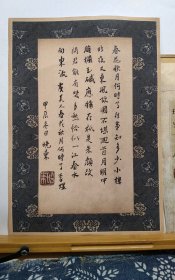 春花秋月何時了往事知多少小樓
昨夜又東風故國不堪回首月明中
雕欄玉砌應猶在只是朱顏改
問君能有幾多愁恰似一江春水
向東流 虞美人春花秋月何時了李煜
甲辰